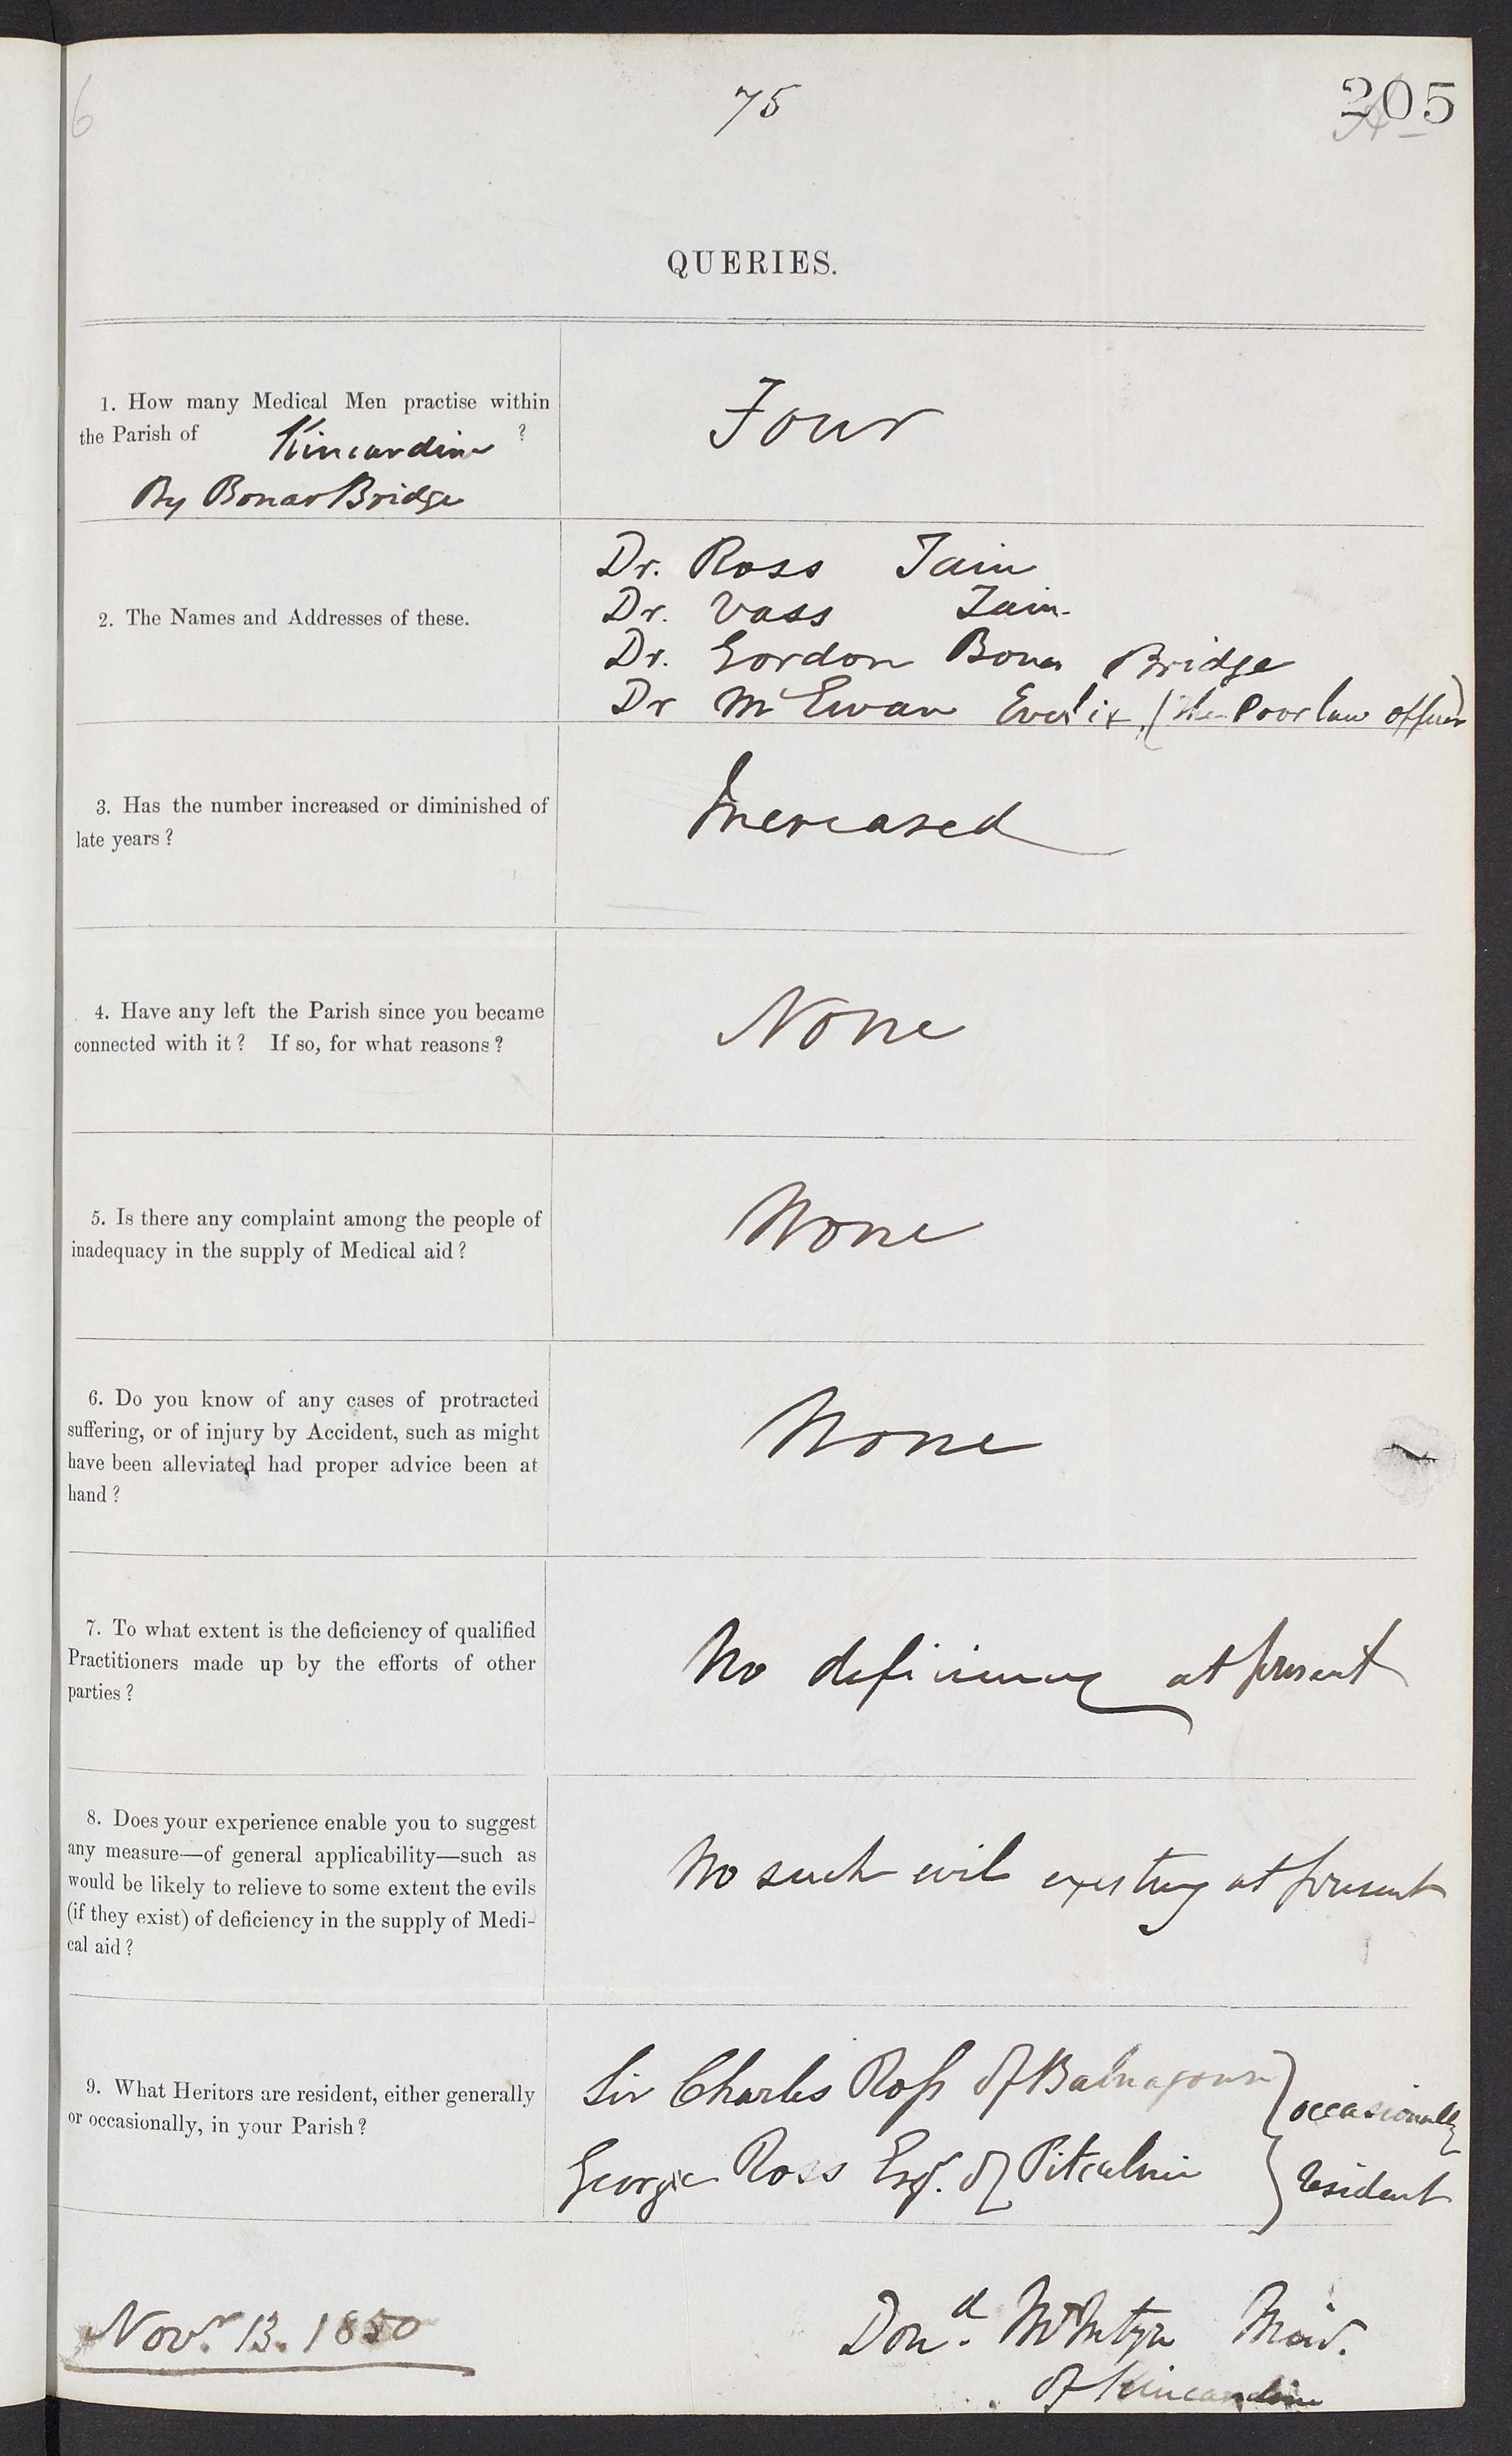 6
75
205
QUERIES.
1. How many Medical Men practise within
the Parish of Kincardine ?
By Bonar Bridge
Four
2. The Names and Addresses of these.
Dr. Ross Tain
Dr. Vass Tain.
Dr. Gordon Bonar Bridge
Dr McEwan Evelix (the Poor law officer)
3. Has the number increased or diminished of
late years ?
Increased
4. Have any left the Parish since you became
connected with it ? If so, for what reasons ?
None
5. Is there any complaint among the people of
inadequacy in the supply of Medical aid ?
None
6. Do you know of any cases of protracted
suffering, or of injury by Accident, such as might
have been alleviated had proper advice been at
hand ?
None
7. To what extent is the deficiency of qualified
Practitioners made up by the efforts of other
parties ?
No deficiency at present
8. Does your experience enable you to suggest
any measure—of general applicability—such as
would be likely to relieve to some extent the evils
(if they exist) of deficiency in the supply of Medi-
cal aid ?
No such evil existing at present
9. What Heritors are resident, either generally
or occasionally, in your Parish ?
Sir Charles Ross of Balnagown } occasionally
George Ross Esqr. of Pitcalnie } resident
Novr. 13. 1850
Dond. McIntyre Minr.
of Kincardine